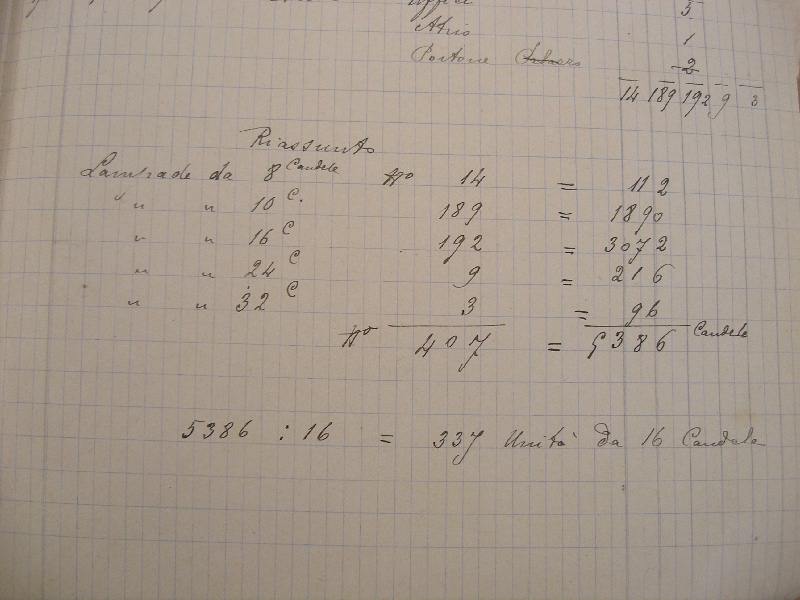 Office 5
Atrio 1
Portone 2
14 189 192 9 3
Riassunto
Lampade da 8 Candele N° 14 = 112
" " 10 C. 189 = 1890
" " 16 C 192 = 3072
" " 24 C 9 = 216
" " 32 C 3 = 96
N° 407 = 5386 Candele
5386 : 16 = 337 Unità da 16 Candele